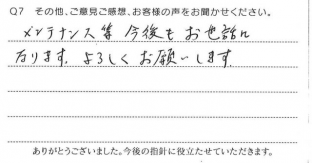 Q7 その他、ご意見ご感想、お客様の声をお聞かせください。
メンテナンス等 今後も お世話に
なります. よろしく お願いします
ありがとうございました。今後の指針に役立たせていただきます。